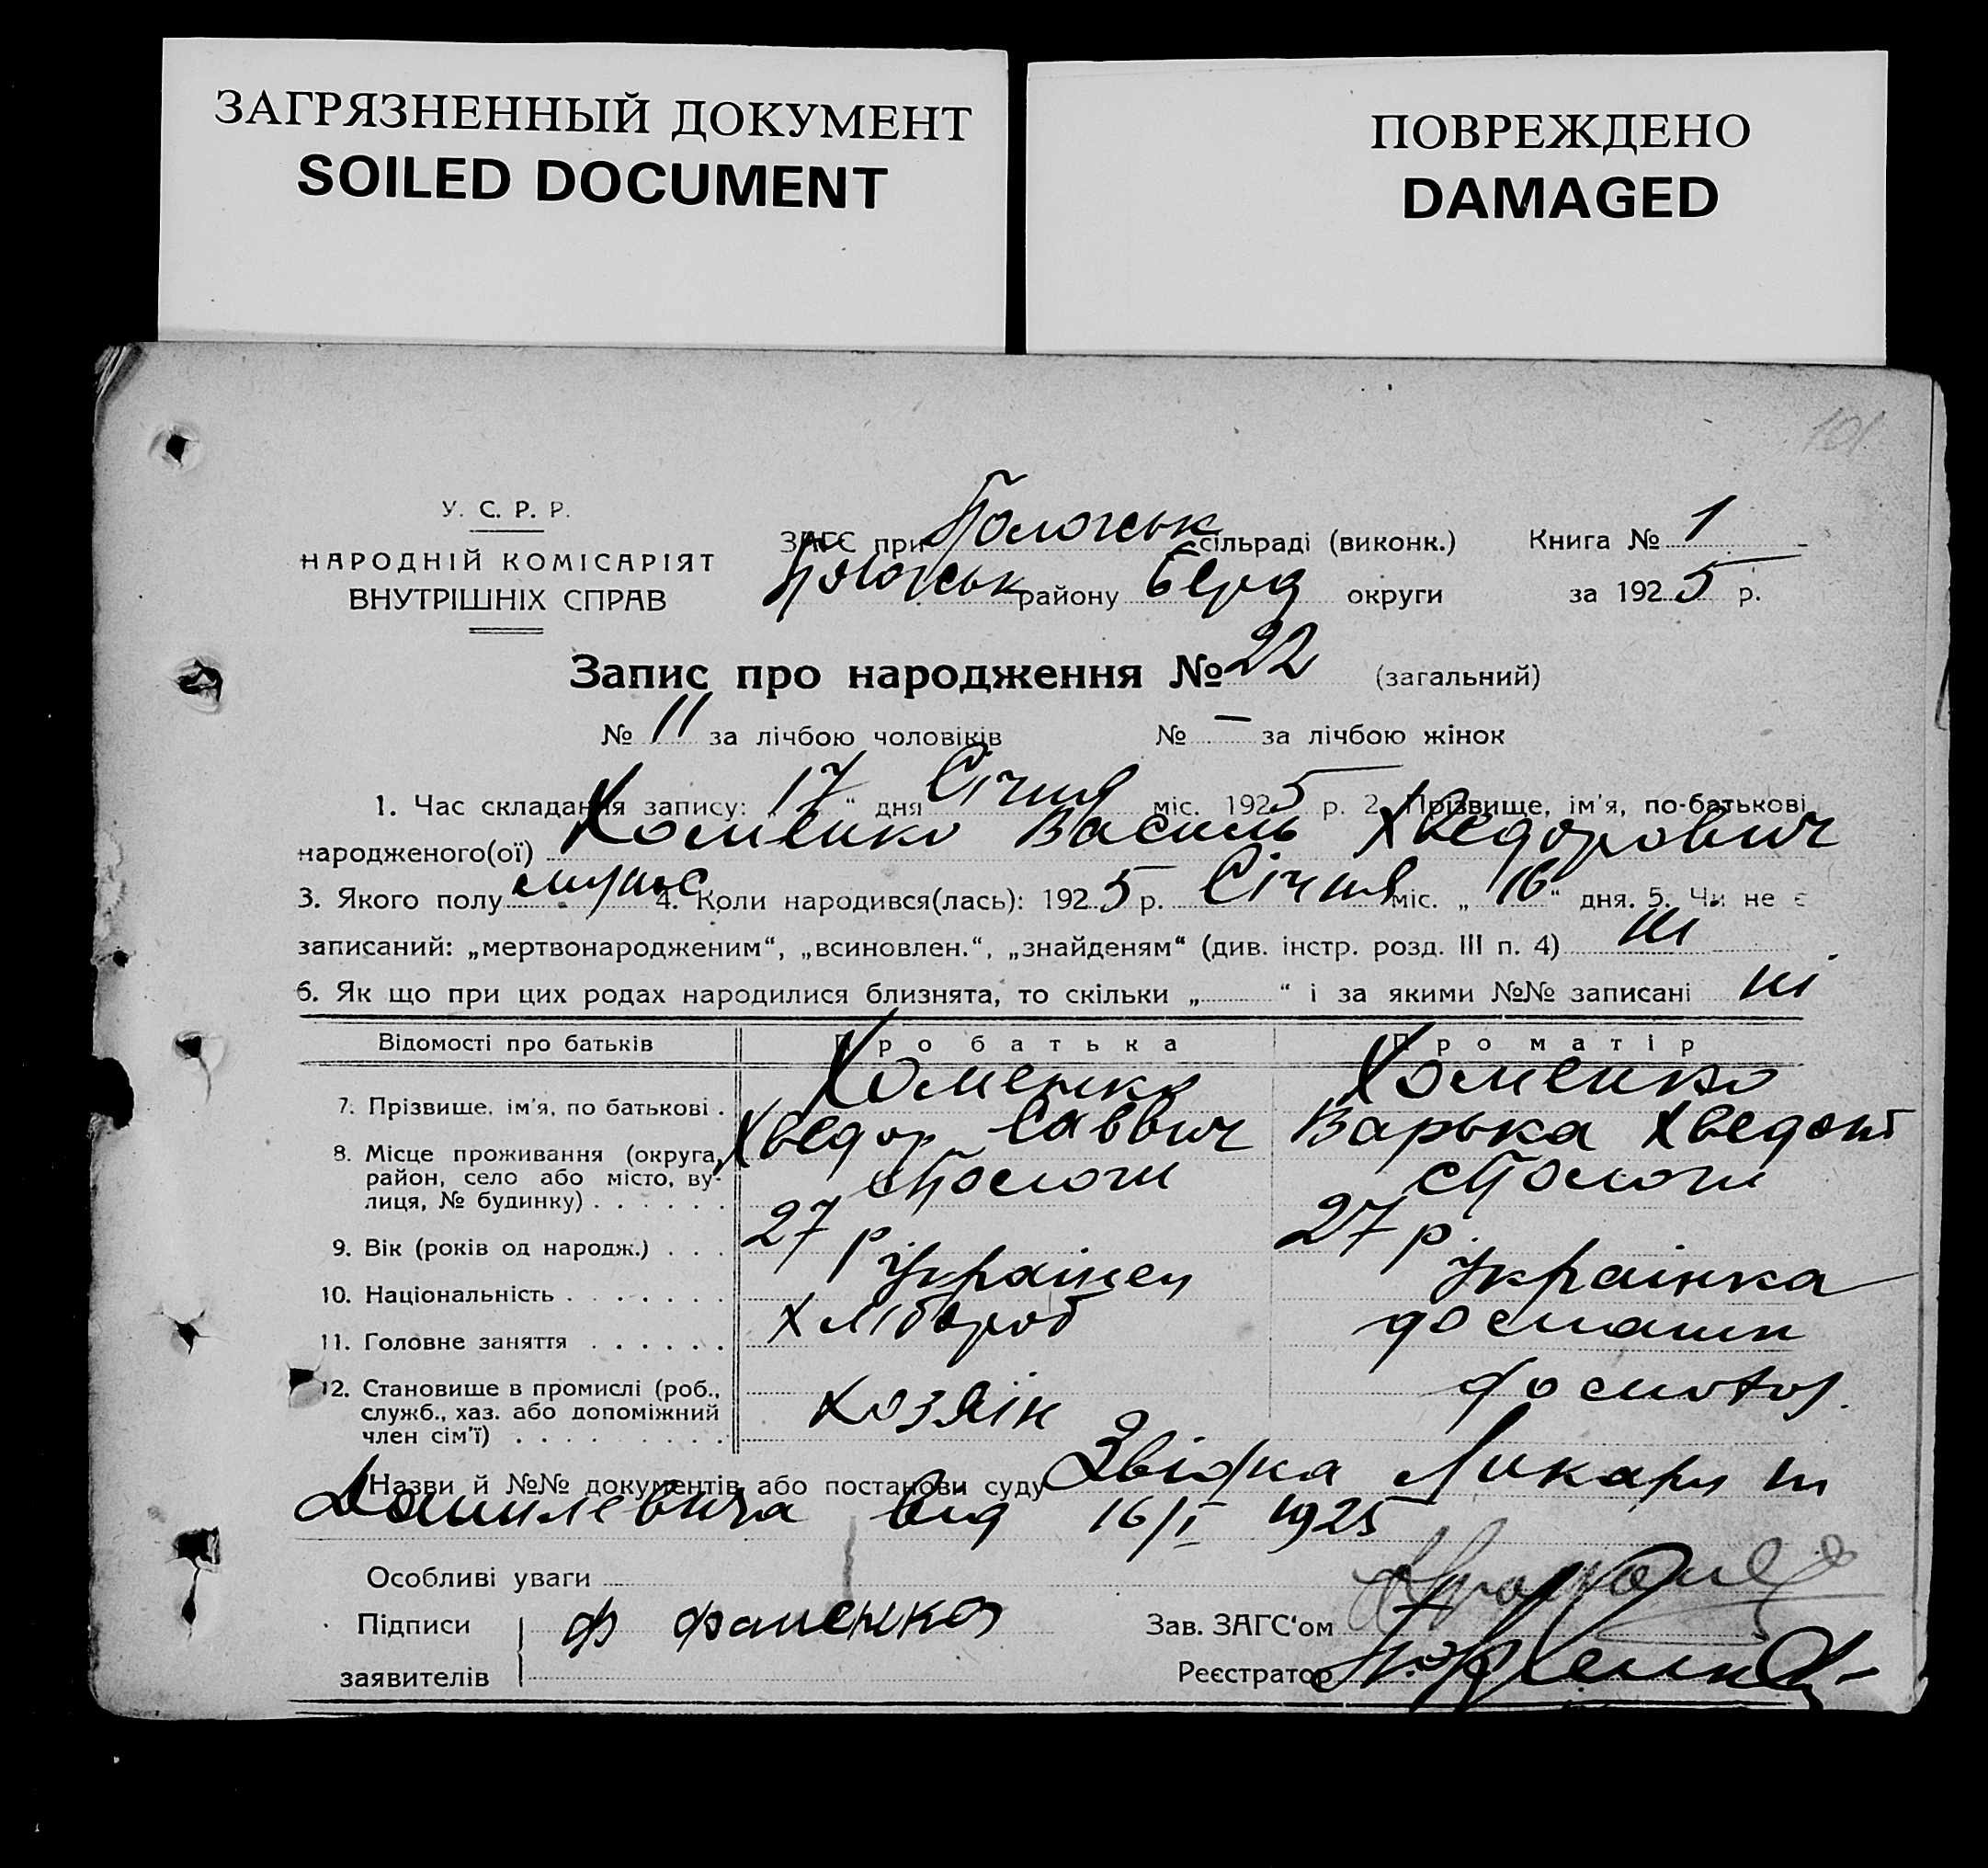 ЗАГРЯЗНЕННЫЙ ДОКУМЕНТ
SOILED DOCUMENT
ПОВРЕЖДЕНО
DAMAGED
101
У. С. Р. Р.
НАРОДНІЙ КОМІСАРІЯТ
ВНУТРІШНІХ СПРАВ
ЗАГС при Пологськ сільраді (виконк.) Книга № 1
Пологськ району Берд округи за 1925 р.
Запис про народження № 22 (загальний)
№ 11 за лічбою чоловіків № — за лічбою жінок
1. Час складання запису: „17“ дня Січня міс. 1925 р. 2. Прізвище, ім'я, по-батькові
народженого(ої) Хоменко Василь Хведорович
3. Якого полу 4. Коли народився(лась): 1925 р. Січня міс. „16“ дня. 5. Чи не є
записаний: „мертвонародженим“, „всиновлен.“, „знайденям“ (див. інстр. розд. III п. 4) ні
6. Як що при цих родах народилися близнята, то скільки „ “ і за якими №№ записані ні
Відомості про батьків Про батька Про матір
7. Прізвище, ім'я, по батькові . Хоменко Хоменко
Хведор Саввич Варька Хведот
8. Місце проживання (округа, район, село або місто, вулиця, № будинку) . . . . . . сПологи сПологи
9. Вік (років од народж.) . . . 27 р 27 р
10. Національність . . . . . . . Українец Українка
11. Головне заняття . . . . . . Хлібороб домашн
12. Становище в промислі (роб., служб., хаз. або допоміжний член сім'ї) . . . . . . . . . хозяін
Назви й №№ документів або постанови суду Звідка Ликаря
Данилевича від 16/I 1925
Особливі уваги
Підписи Ф Зав. ЗАГС'ом
заявителів Реєстратор